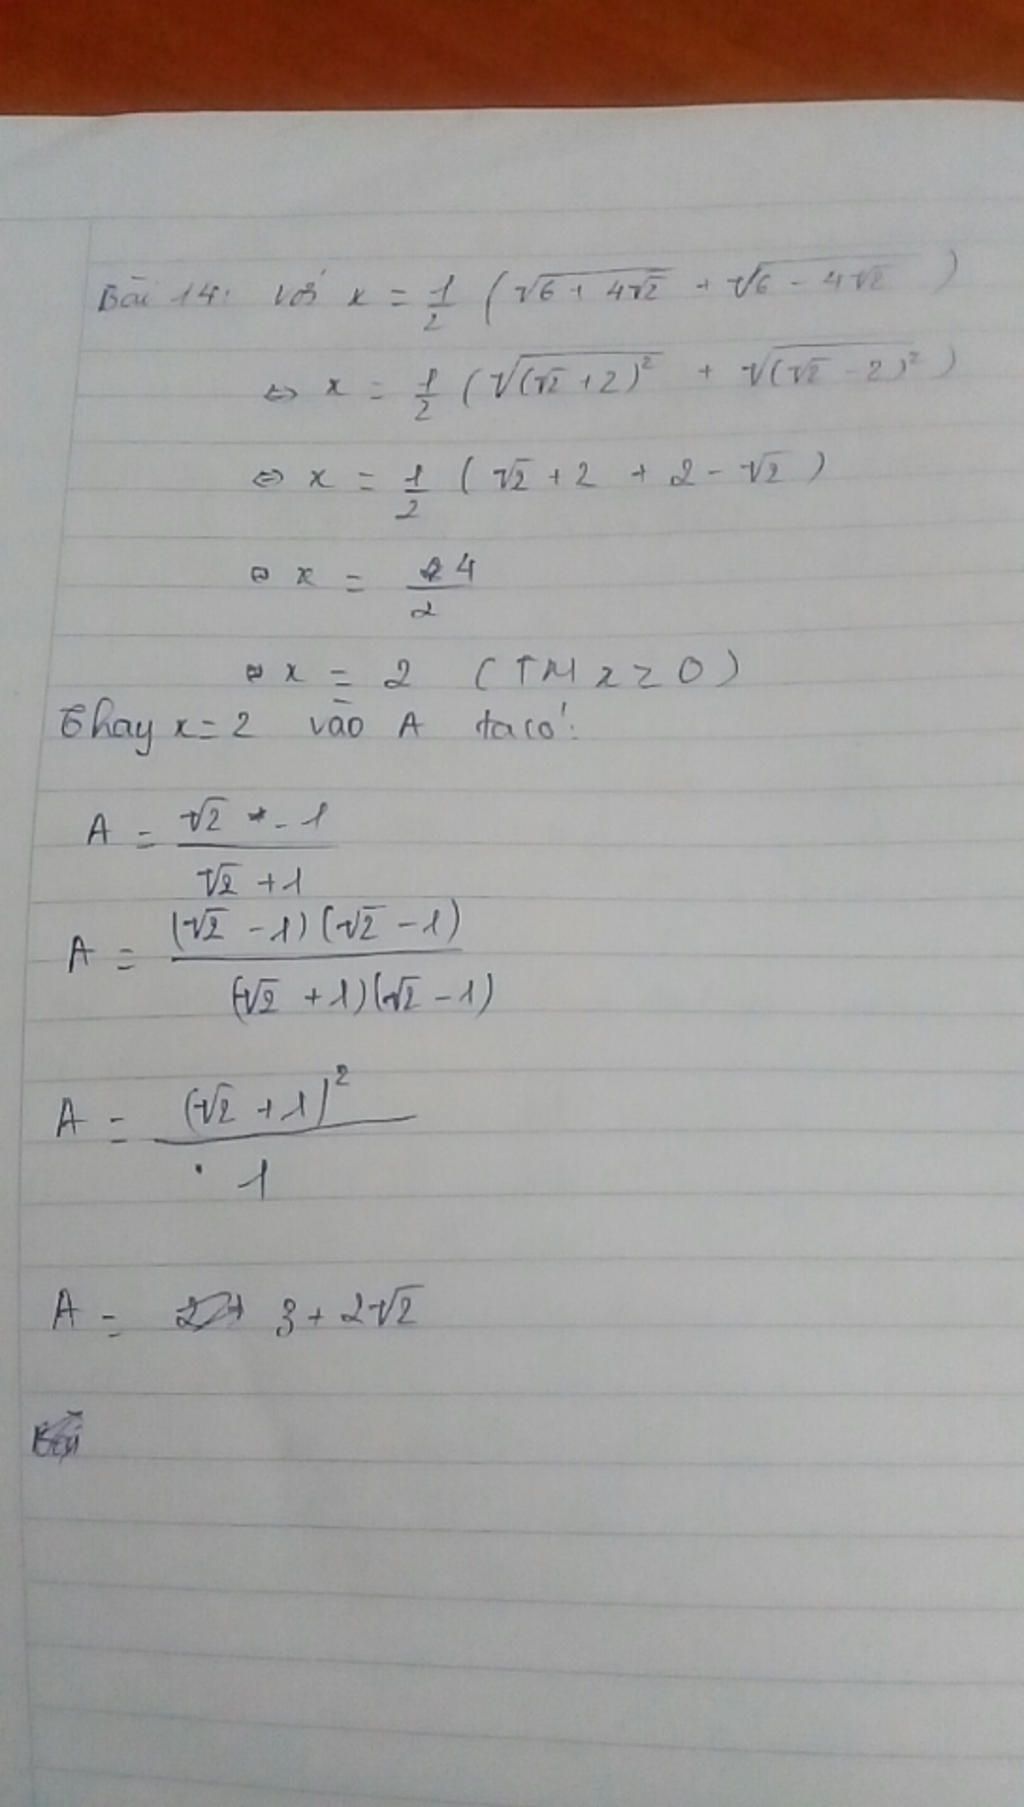 Bài 14: với x = 1/2 (√(6 + 4√2) + √(6 - 4√2))
⇔ x = 1/2 (√((√2 + 2)²) + √((√2 - 2)²))
⇔ x = 1/2 (√2 + 2 + 2 - √2)
⇔ x = 4/2
⇔ x = 2 (TM x ≥ 0)
Thay x = 2 vào A ta có:
A = (√2 - 1)/(√2 + 1)
A = ((√2 - 1)(√2 - 1))/((√2 + 1)(√2 - 1))
A = (√2 + 1)²/1
A = 3 + 2√2